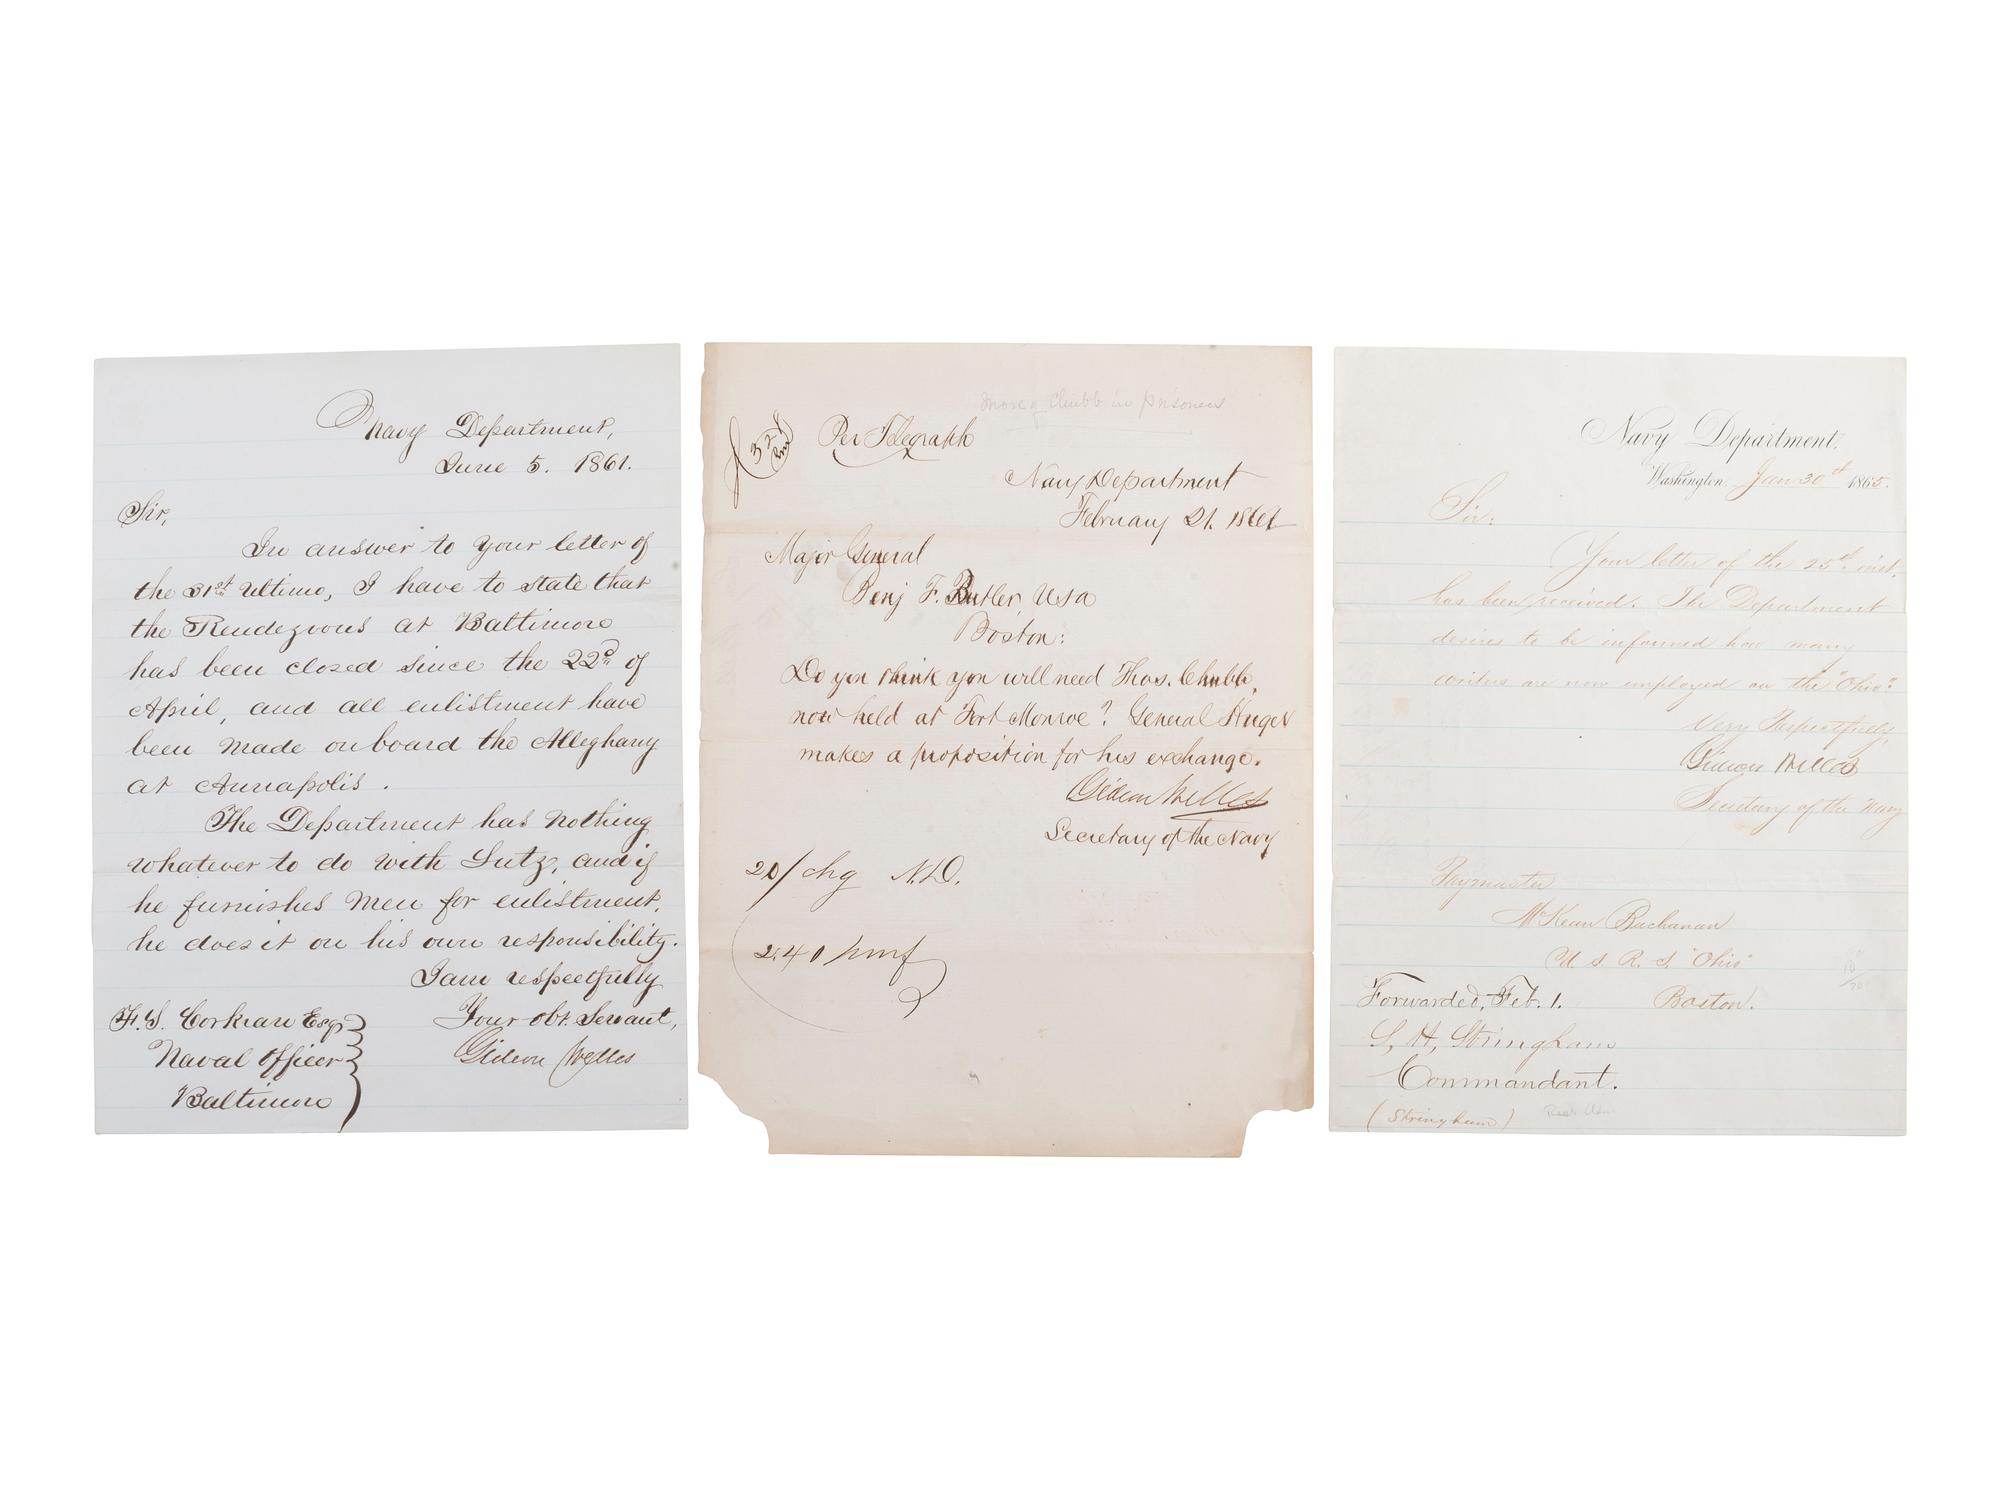 Navy Department,
June 5. 1861.
Sir,
In answer to your letter of
the 31st Ultimo, I have to state that
the Rendezvous at Baltimore
has been closed since the 22d of
April, and all enlistment have
been made on board the Alleghany
at Annapolis.
The Department has nothing
whatever to do with Lutz, and if
he furnishes men for enlistment,
he does it on his own responsibility.
I am respectfully
Your obt. Servant,
Gideon Welles
F. S. Corkran Esqr
Naval Officer
Baltimore
More of Chubb in prisoners
Per Telegraph
Navy Department
February 21. 1861
Major General
Benj F. Butler, USA
Boston:
Do you think you will need Thos. Chubb,
now held at Fort Monroe? General Huger
makes a proposition for his exchange.
Gideon Welles
Secretary of the Navy
20/ chg N.D.
2.40 pm
Navy Department.
Washington, Jan 30th 1865.
Sir:
Your letter of the 25th inst.
has been received. The Department
desires to be informed how many
writers are now employed on the "Ohio".
Very Respectfully,
Gideon Welles
Secretary of the Navy
Paymaster
McKean Buchanan
U. S. R. S. "Ohio"
Boston.
Forwarded, Feb. 1.
S. H. Stringham
Commandant.
(Stringham)